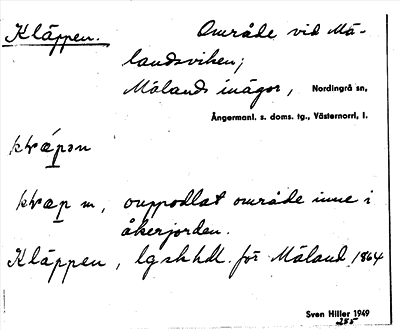 Kläppen. Område vid Må-
landsviken;
Målands inägor, Nordingrå sn,
Ångermanl. s. doms. tg., Västernorrl. l.
klæ̀pən
klæp m, ouppodlat område inne i
åkerjorden.
Kläppen, lgskhdl. för Måland 1864
Sven Hiller 1949
255